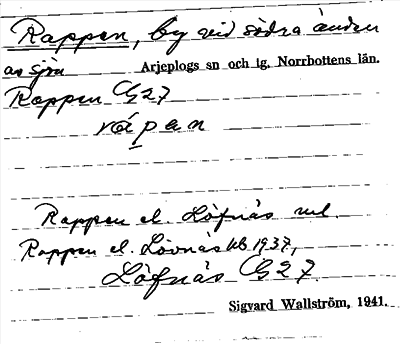 Rappen, by vid södra änden
av sjön Arjeplogs sn och tg. Norrbottens län.
Rappen G27
rápan
Rappen el. Löfnäs ml.
Rappen el. Lövnäs kb 1937,
Löfnäs G27
Sigvard Wallström, 1941.